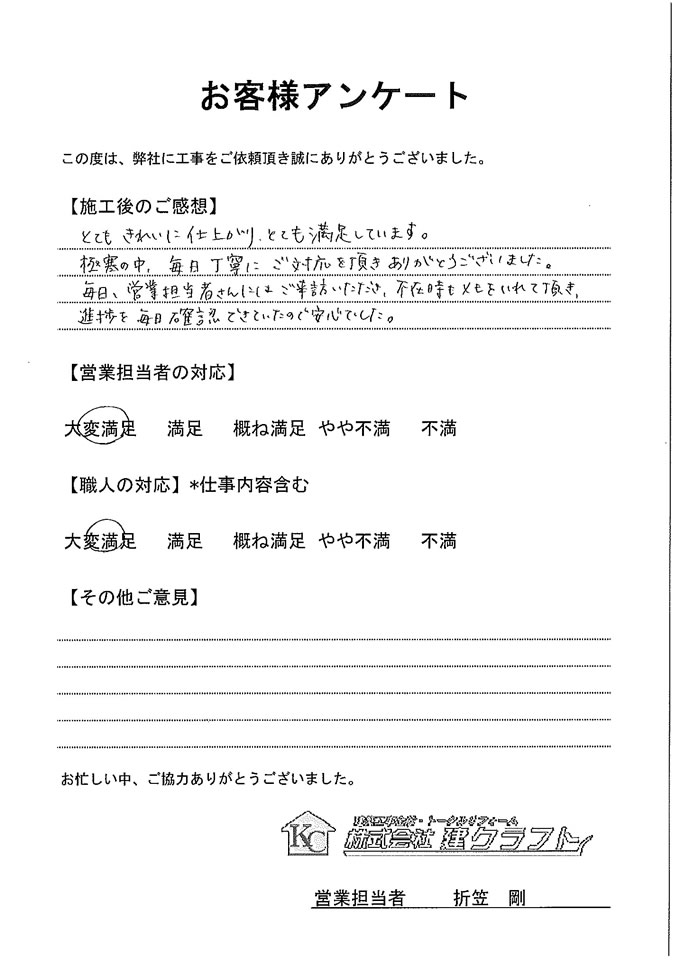 お客様アンケート
この度は、弊社に工事をご依頼頂き誠にありがとうございました。
【施工後のご感想】
とても きれいに 仕上がり、とても満足しています。
極寒の中、毎日丁寧に ご対応を頂き ありがとうございました。
毎日、営業担当者さんには ご来訪いただき、不在時も メモをいれて頂き、
進捗を 毎日確認できていたので安心でした。
【営業担当者の対応】
大変満足 満足 概ね満足 やや不満 不満
【職人の対応】*仕事内容含む
大変満足 満足 概ね満足 やや不満 不満
【その他ご意見】
お忙しい中、ご協力ありがとうございました。
KC
トータルリフォーム
株式会社 建クラフト
営業担当者 折笠 剛